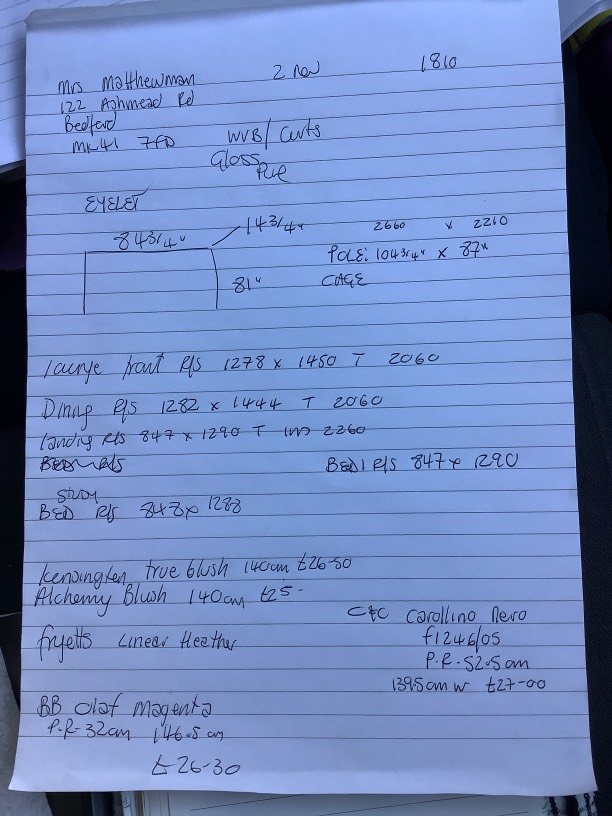 Mrs Matthewman 2 Nov 1810
122 Ashmead Rd
Bedford
MK41 7FD
WVB/ Curts
Gloss
Pve
EYELET
84 3/4" 14 3/4" 2660 x 2210
POLE: 104 3/4" x 87"
81" CAGE
lounge front R/S 1278 x 1450 T 2060
Dining R/S 1282 x 1444 T 2060
landing R/S 847 x 1290 T 2260
BED R/S BED 1 R/S 847 x 1290
STUDY
BED R/S 848 x 1288
Kensington true blush 140cm £26-50
Alchemy Blush 140cm £25-
C&C Carollino Nero
fryetts Linear Heather f1246/05
P.R-52.5cm
139.5cm w £27-00
BB Olaf Magenta
P.R-32cm 146.5 cm
£26-30